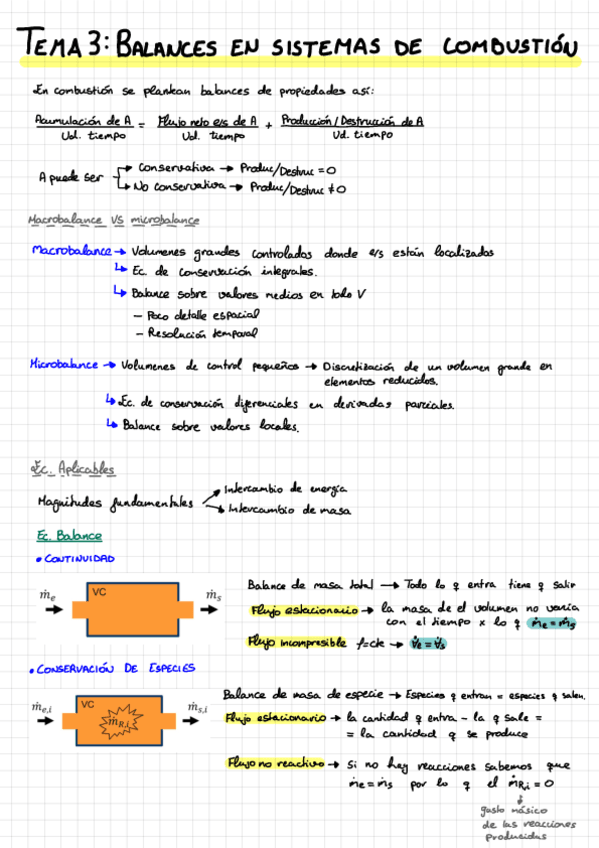 TEMA 3: BALANCES EN SISTEMAS DE COMBUSTIÓN
En combustión se plantean balances de propiedades así:
Acumulación de A / Ud. tiempo = Flujo neto e/s de A / Ud. tiempo + Producción/Destrucción de A / Ud. tiempo
A puede ser → Conservativa → Produc/Destruc = 0
→ No conservativa → Produc/Destruc ≠ 0
Macrobalance VS microbalance
Macrobalance → Volumenes grandes controlados donde e/s están localizados
↳ Ec. de conservación integrales.
↳ Balance sobre valores medios en todo V
– Poco detalle espacial
– Resolución temporal
Microbalance → Volumenes de control pequeños → Discretización de un volumen grande en
elementos reducidos.
↳ Ec. de conservación diferenciales en derivadas parciales.
↳ Balance sobre valores locales.
Ec. Aplicables
Magnitudes fundamentales → Intercambio de energía
→ Intercambio de masa
Ec. Balance
• CONTINUIDAD
ṁe VC ṁs
Balance de masa total → Todo lo q entra tiene q salir
Flujo estacionario → la masa de el volumen no varía
con el tiempo x lo q ṁe = ṁs
Flujo incompresible f=cte → V̇e = V̇s
• CONSERVACIÓN DE ESPECIES
ṁe,i VC ṁR,i ṁs,i
Balance de masa de especie → Especies q entran = especies q salen.
Flujo estacionario → la cantidad q entra – la q sale =
= la cantidad q se produce
Flujo no reactivo → Si no hay reacciones sabemos que
ṁe = ṁs por lo q el ṁRi = 0
gasto másico
de las reacciones
producidas